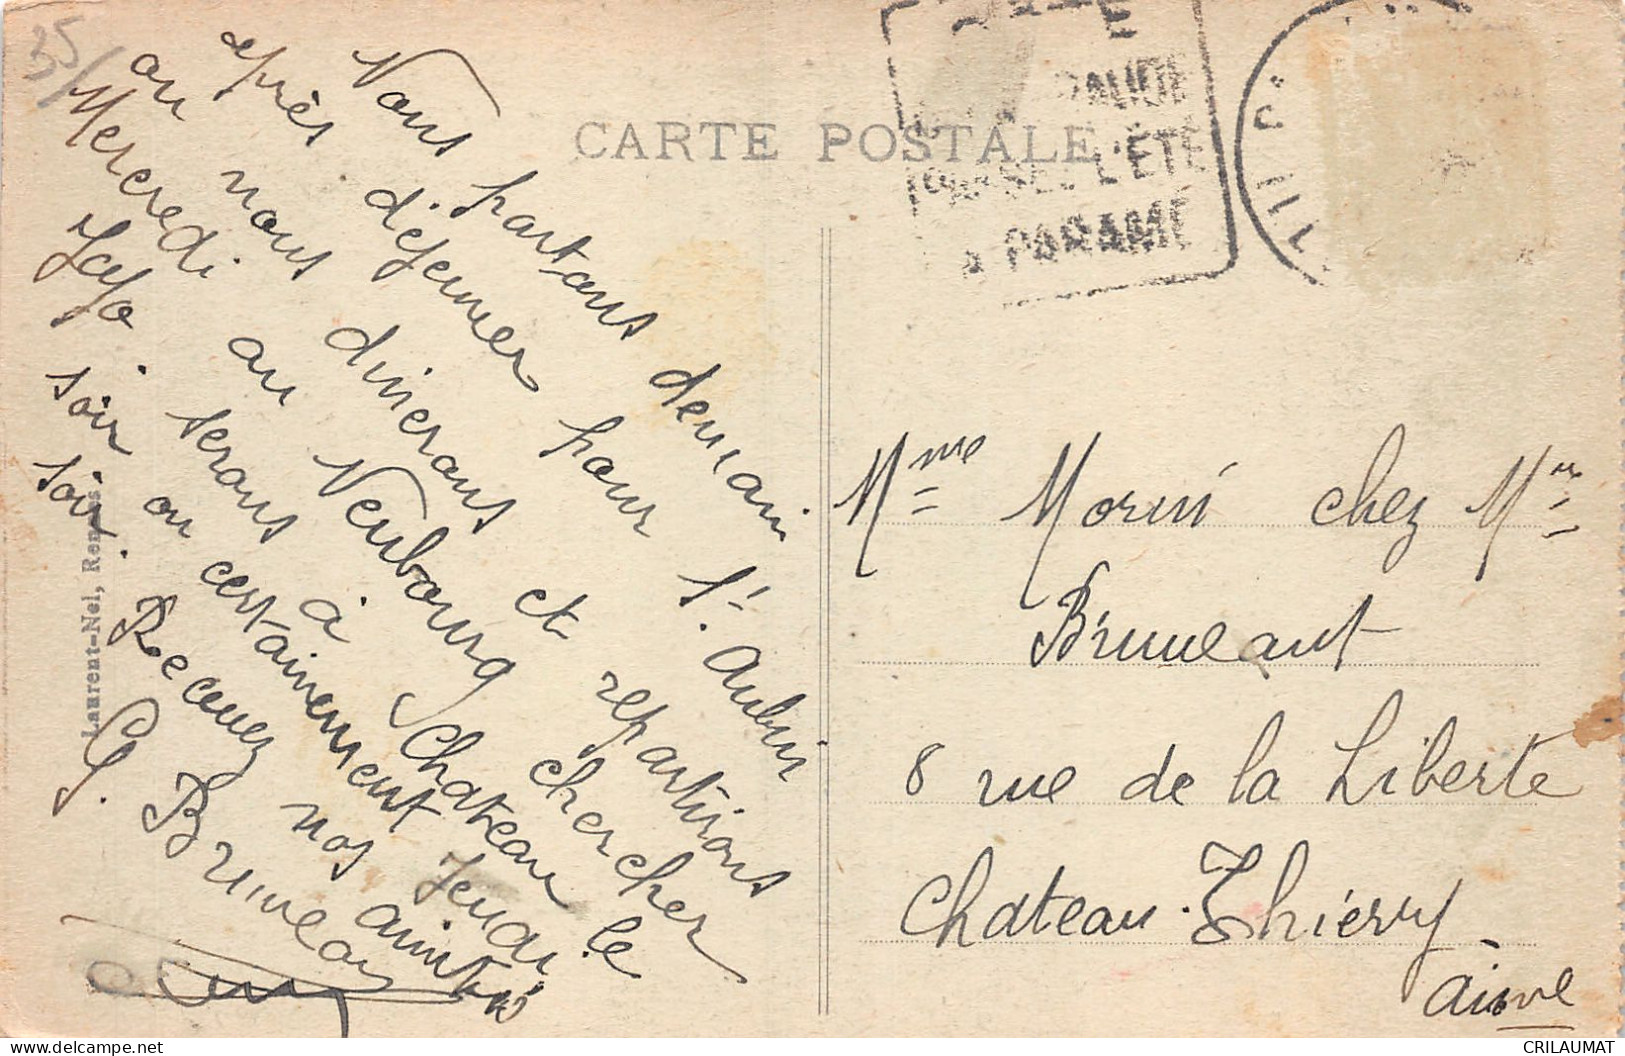 35/
CARTE POSTALE
L'ÉTÉ
A PARAMÉ
Nous partons demain
après déjeuner pour St. Aubin
ou nous dinerons et repartirons
Mercredi au Neubourg chercher
Yoyo. serons à Chateau le
soir ou certainement Jeudi
soir. Recevez nos amitiés
G. Bruneau
Laurent-Nel, Rennes
Mme Morin chez Mr
Bruneaut
8 rue de la Liberté
Chateau-Thierry.
Aisne
CRILAUMAT